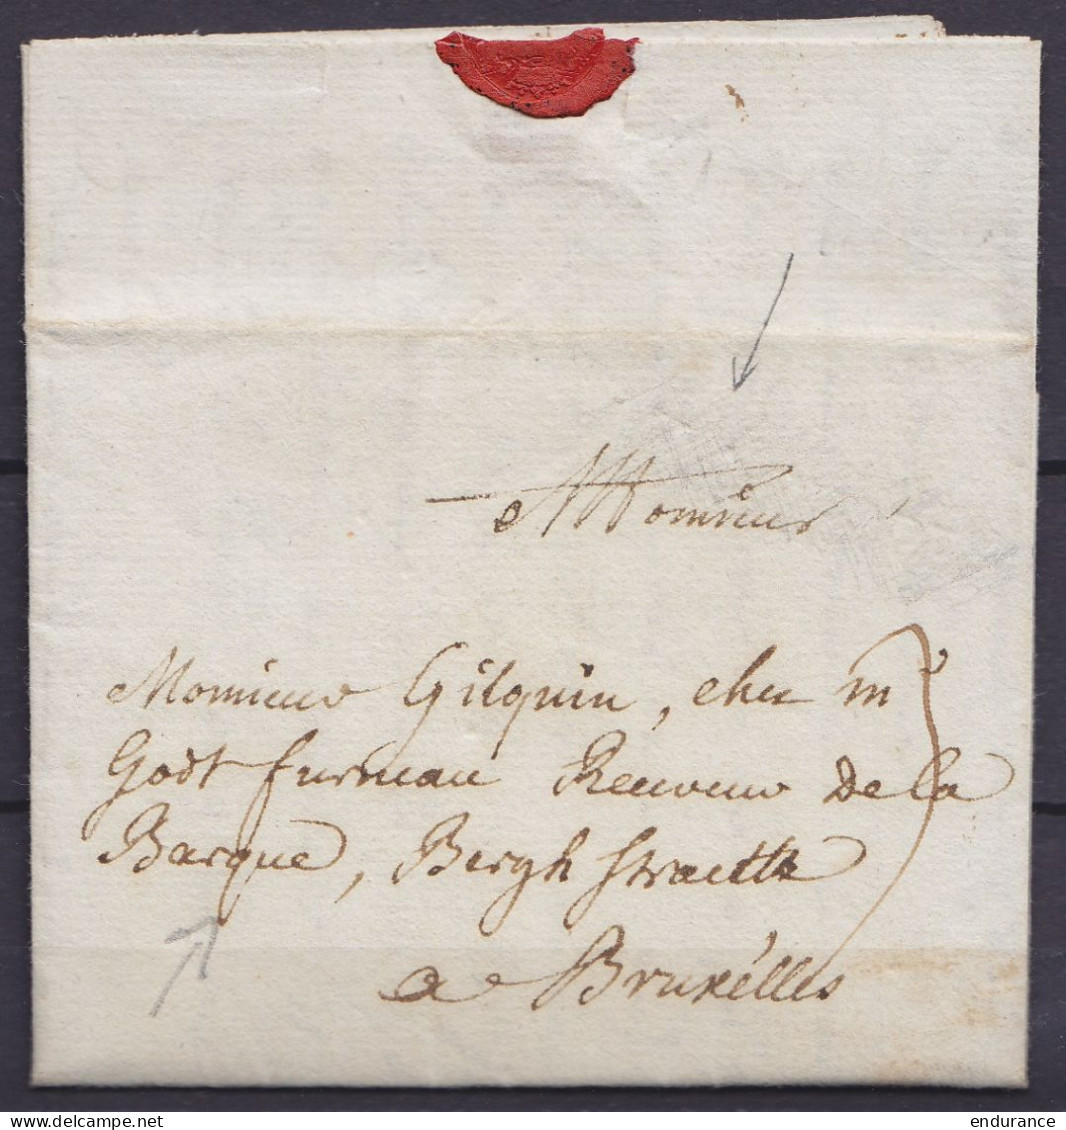 A Monsieur
Monsieur Gilquin, chez m
Godt furneau Receveur De la
Barque, Bergh straette
a Bruxélles
delcampe.net
endurance